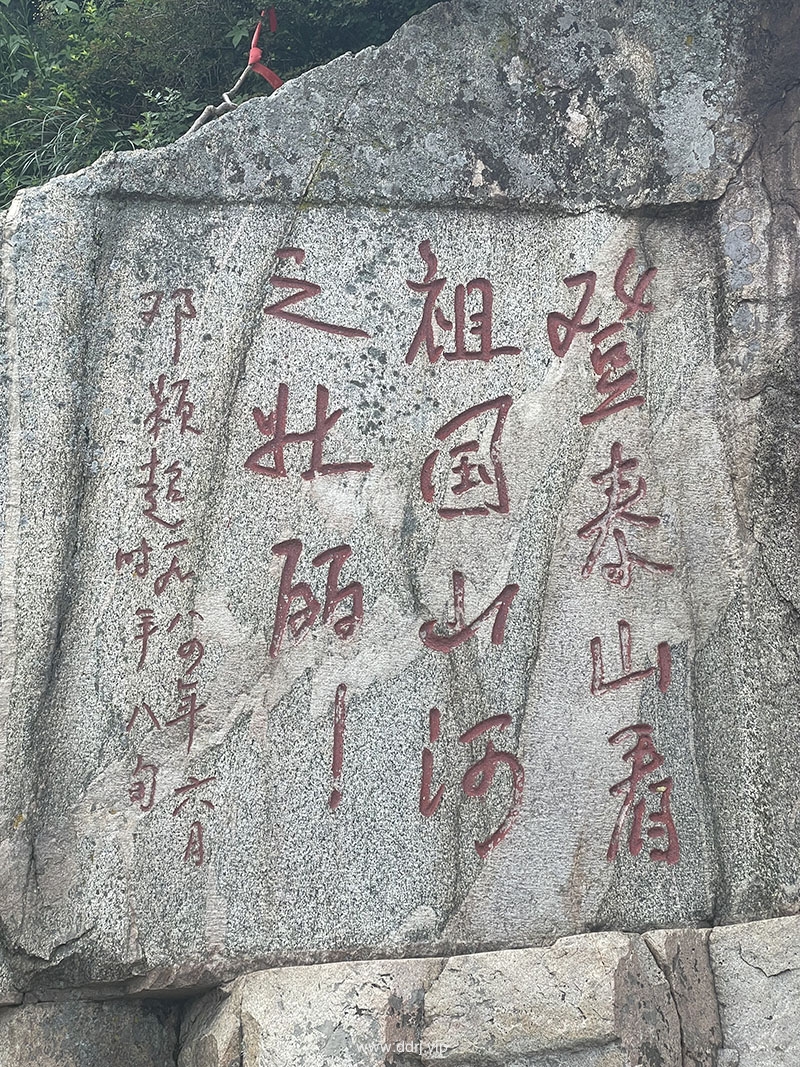 登泰山看
祖国山河
之壮丽！
邓颖超一九八四年六月
时年八旬
www.ddrl.vip